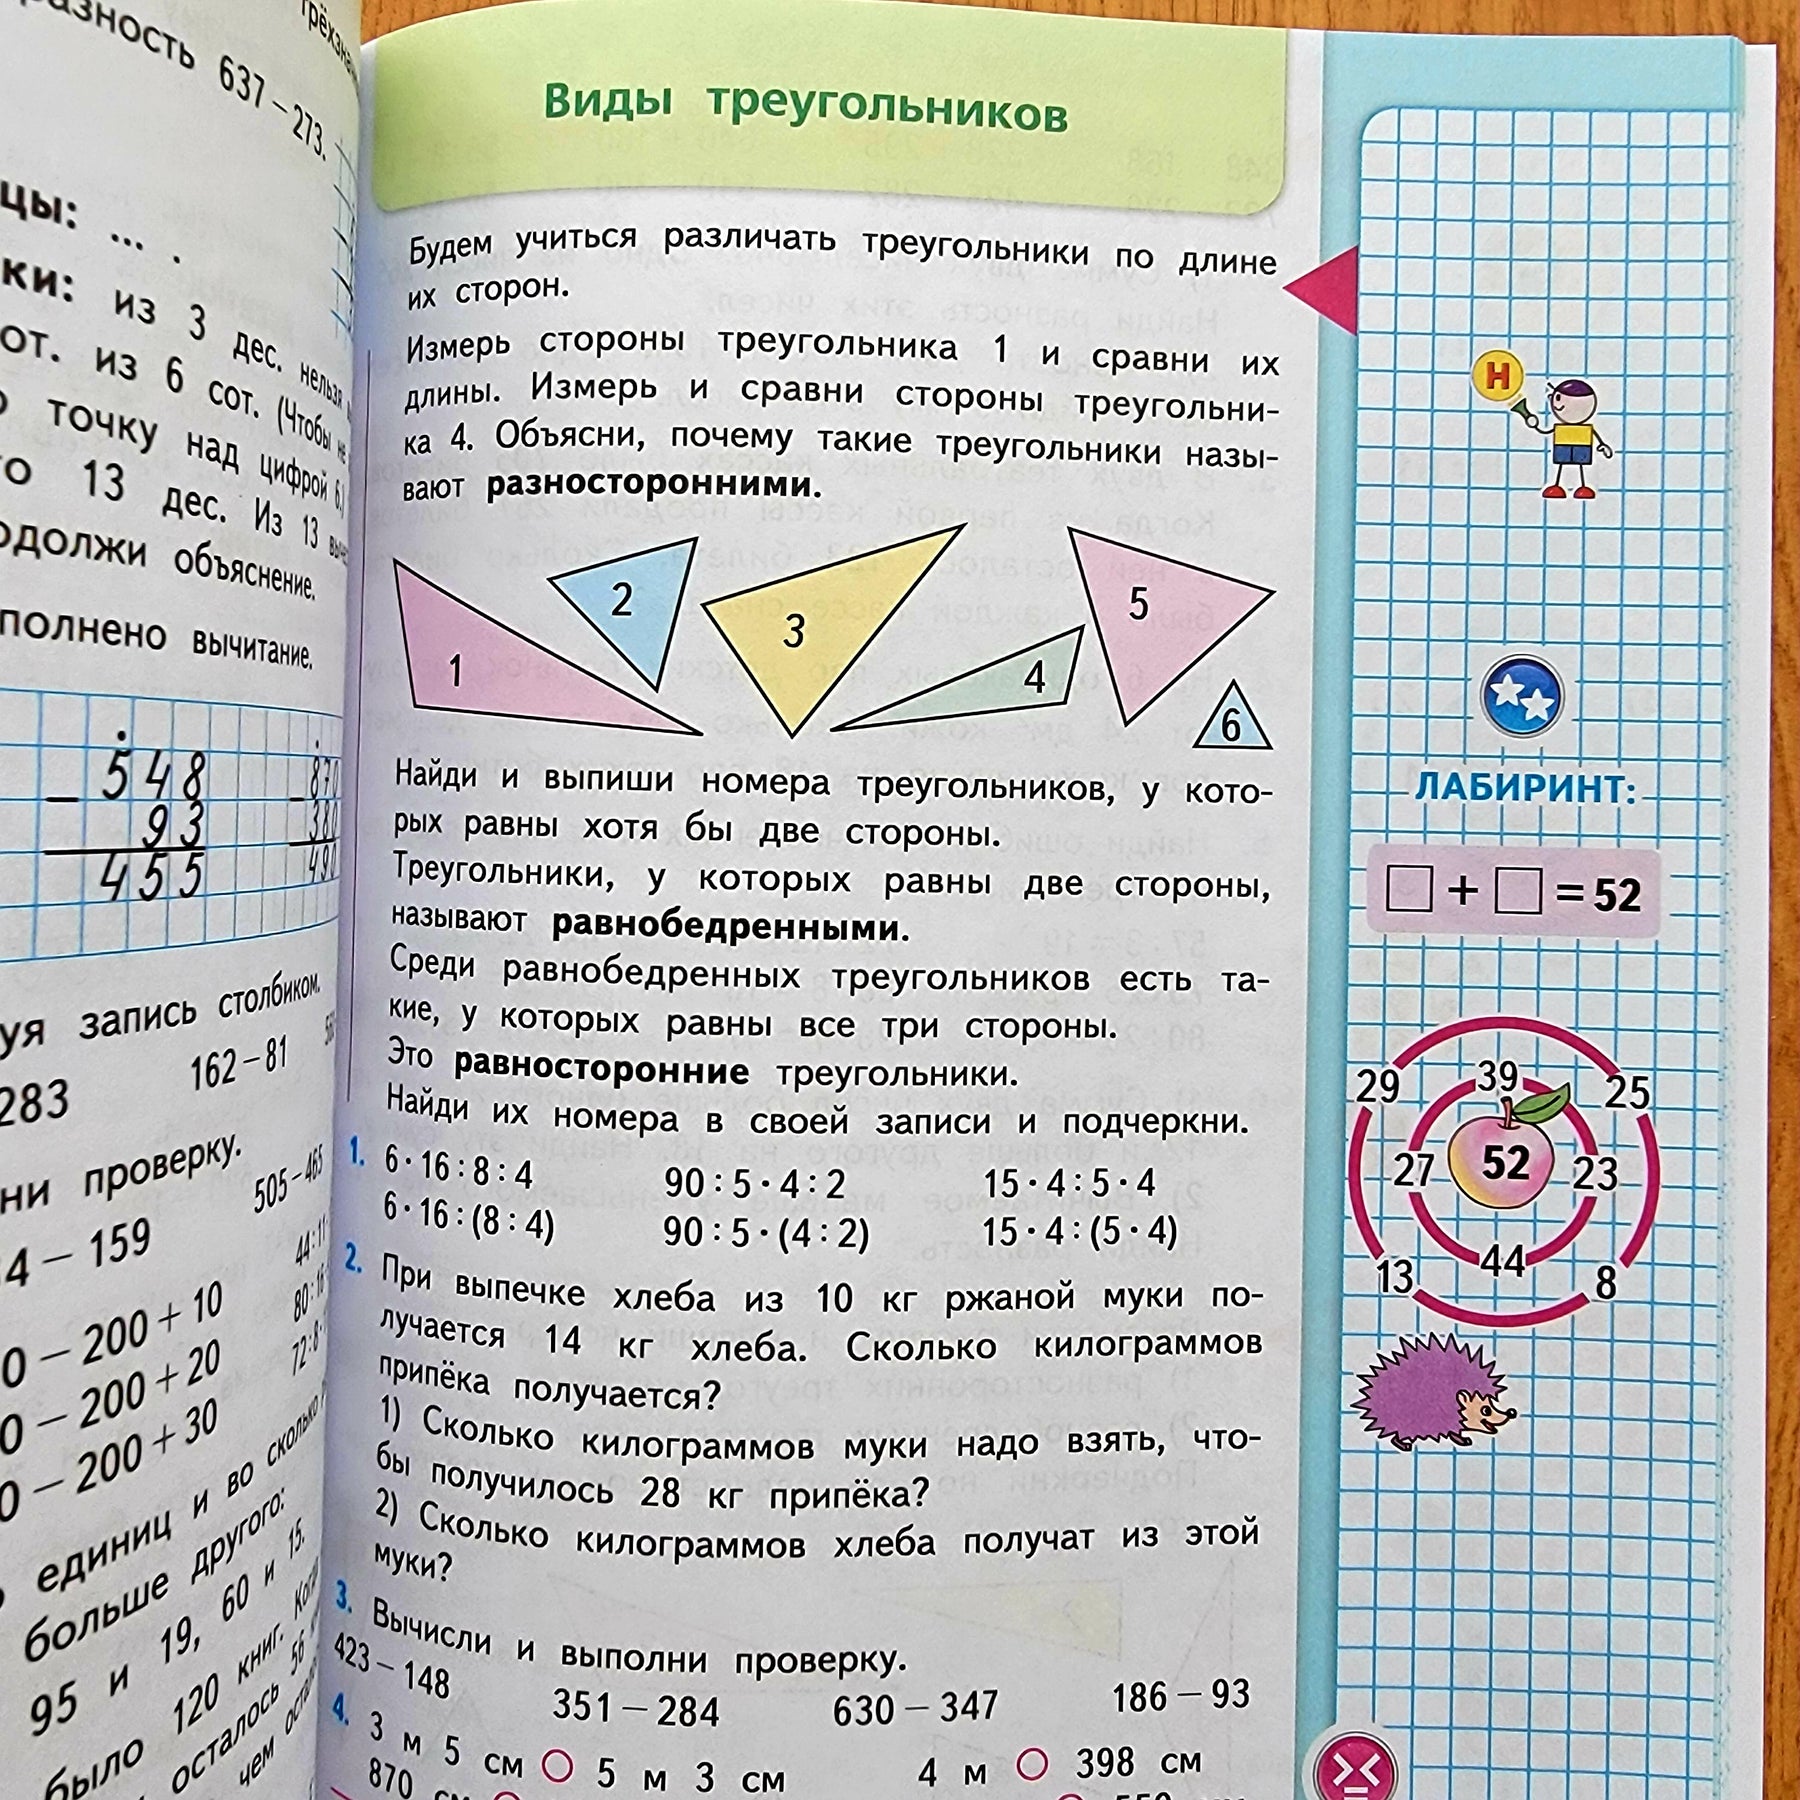 разность 637 – 273.
цы: ... .
ки: из 3 дес. нельзя
от. из 6 сот. (Чтобы не
точку над цифрой 6.)
13 дес. Из 13
объяснение.
вычитание.
548
– 93
455
– 870
380
490
запись столбиком.
283 162 – 81
проверку.
4 – 159 505 – 465
0 – 200 + 10 44 : 11
0 – 200 + 20 80 : 16
0 – 200 + 30 72 : 8
единиц и во сколько
больше другого:
95 и 19, 60 и 15.
было 120 книг. Когда
осталось 56
чем
Виды треугольников
Будем учиться различать треугольники по длине
их сторон.
Измерь стороны треугольника 1 и сравни их
длины. Измерь и сравни стороны треугольни-
ка 4. Объясни, почему такие треугольники назы-
вают разносторонними.
1 2 3 4 5 6
Найди и выпиши номера треугольников, у кото-
рых равны хотя бы две стороны.
Треугольники, у которых равны две стороны,
называют равнобедренными.
Среди равнобедренных треугольников есть та-
кие, у которых равны все три стороны.
Это равносторонние треугольники.
Найди их номера в своей записи и подчеркни.
1. 6 · 16 : 8 : 4 90 : 5 · 4 : 2 15 · 4 : 5 · 4
6 · 16 : (8 : 4) 90 : 5 · (4 : 2) 15 · 4 : (5 · 4)
2. При выпечке хлеба из 10 кг ржаной муки по-
лучается 14 кг хлеба. Сколько килограммов
припёка получается?
1) Сколько килограммов муки надо взять, что-
бы получилось 28 кг припёка?
2) Сколько килограммов хлеба получат из этой
муки?
3. Вычисли и выполни проверку.
423 – 148 351 – 284 630 – 347 186 – 93
4. 3 м 5 см ○ 5 м 3 см 4 м ○ 398 см
870 см
Н
ЛАБИРИНТ:
□ + □ = 52
29 39 25
27 52 23
13 44 8